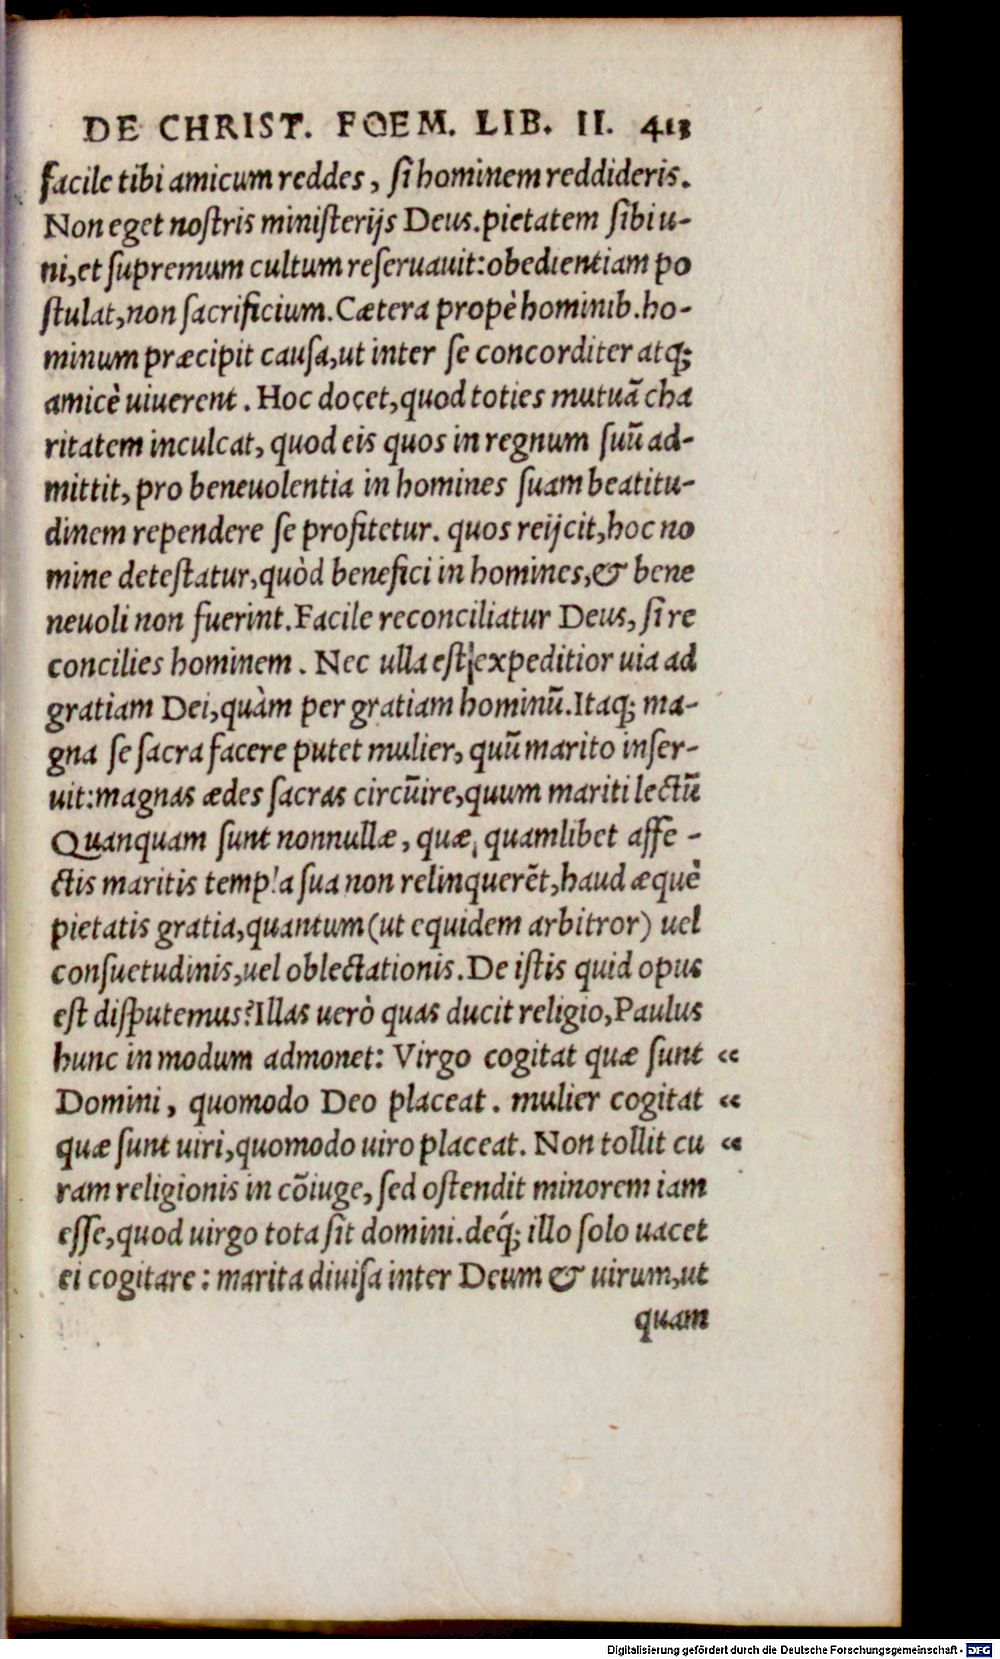 DE CHRIST. FOEM. LIB. II. 413
facile tibi amicum reddes, si hominem reddideris.
Non eget nostris ministerijs Deus. pietatem sibi u-
ni, et supremum cultum reseruauit: obedientiam po
stulat, non sacrificium. Cætera propè hominib. ho-
minum præcipit causa, ut inter se concorditer atq;
amicè uiuerent. Hoc docet, quod toties mutuā cha
ritatem inculcat, quod eis quos in regnum suū ad-
mittit, pro beneuolentia in homines suam beatitu-
dinem rependere se profitetur. quos reijcit, hoc no
mine detestatur, quòd benefici in homines, & bene
neuoli non fuerint. Facile reconciliatur Deus, si re
concilies hominem. Nec ulla est expeditior uia ad
gratiam Dei, quàm per gratiam hominū. Itaq; ma-
gna se sacra facere putet mulier, quū marito inser-
uit: magnas ædes sacras circūire, quum mariti lectū
Quanquam sunt nonnullæ, quæ, quamlibet affe-
ctis maritis templa sua non relinquerēt, haud æquè
pietatis gratia, quantum (ut equidem arbitror) uel
consuetudinis, uel oblectationis. De istis quid opus
est disputemus? Illas uerò quas ducit religio, Paulus
hunc in modum admonet: Virgo cogitat quæ sunt “
Domini, quomodo Deo placeat. mulier cogitat “
quæ sunt uiri, quomodo uiro placeat. Non tollit cu “
ram religionis in cōiuge, sed ostendit minorem iam
esse, quod uirgo tota sit domini. deq́; illo solo uacet
ei cogitare: marita diuisa inter Deum & uirum, ut
quam
Digitalisierung gefördert durch die Deutsche Forschungsgemeinschaft - DFG